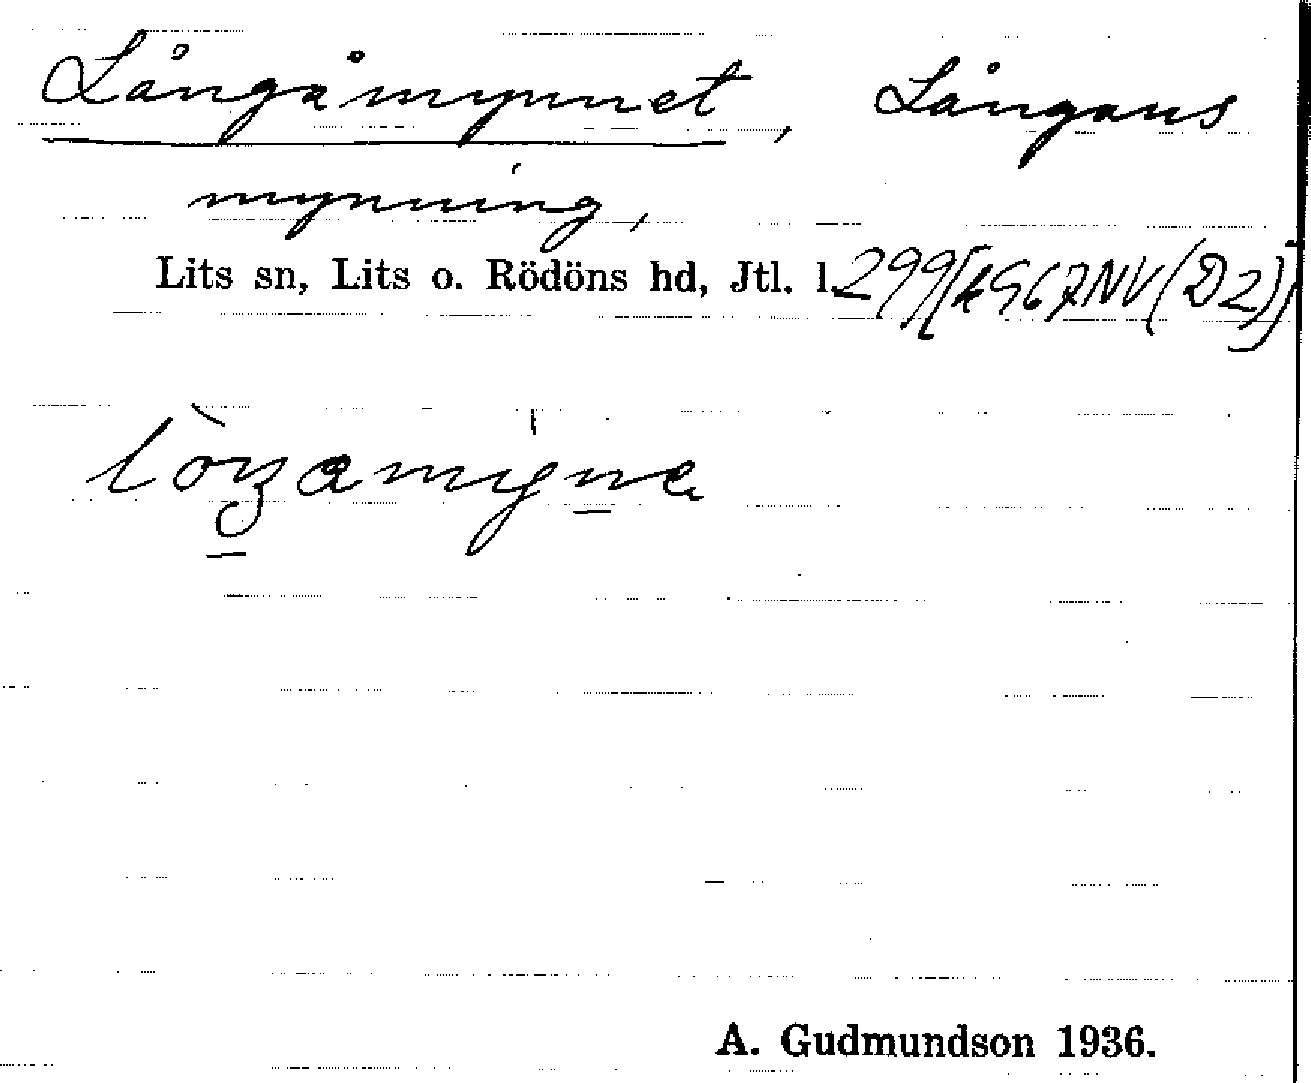 Långåmynnet, Långans
mynning,
Lits sn, Lits o. Rödöns hd, Jtl. l. 299[AS67NV(D2)]
A. Gudmundson 1936.